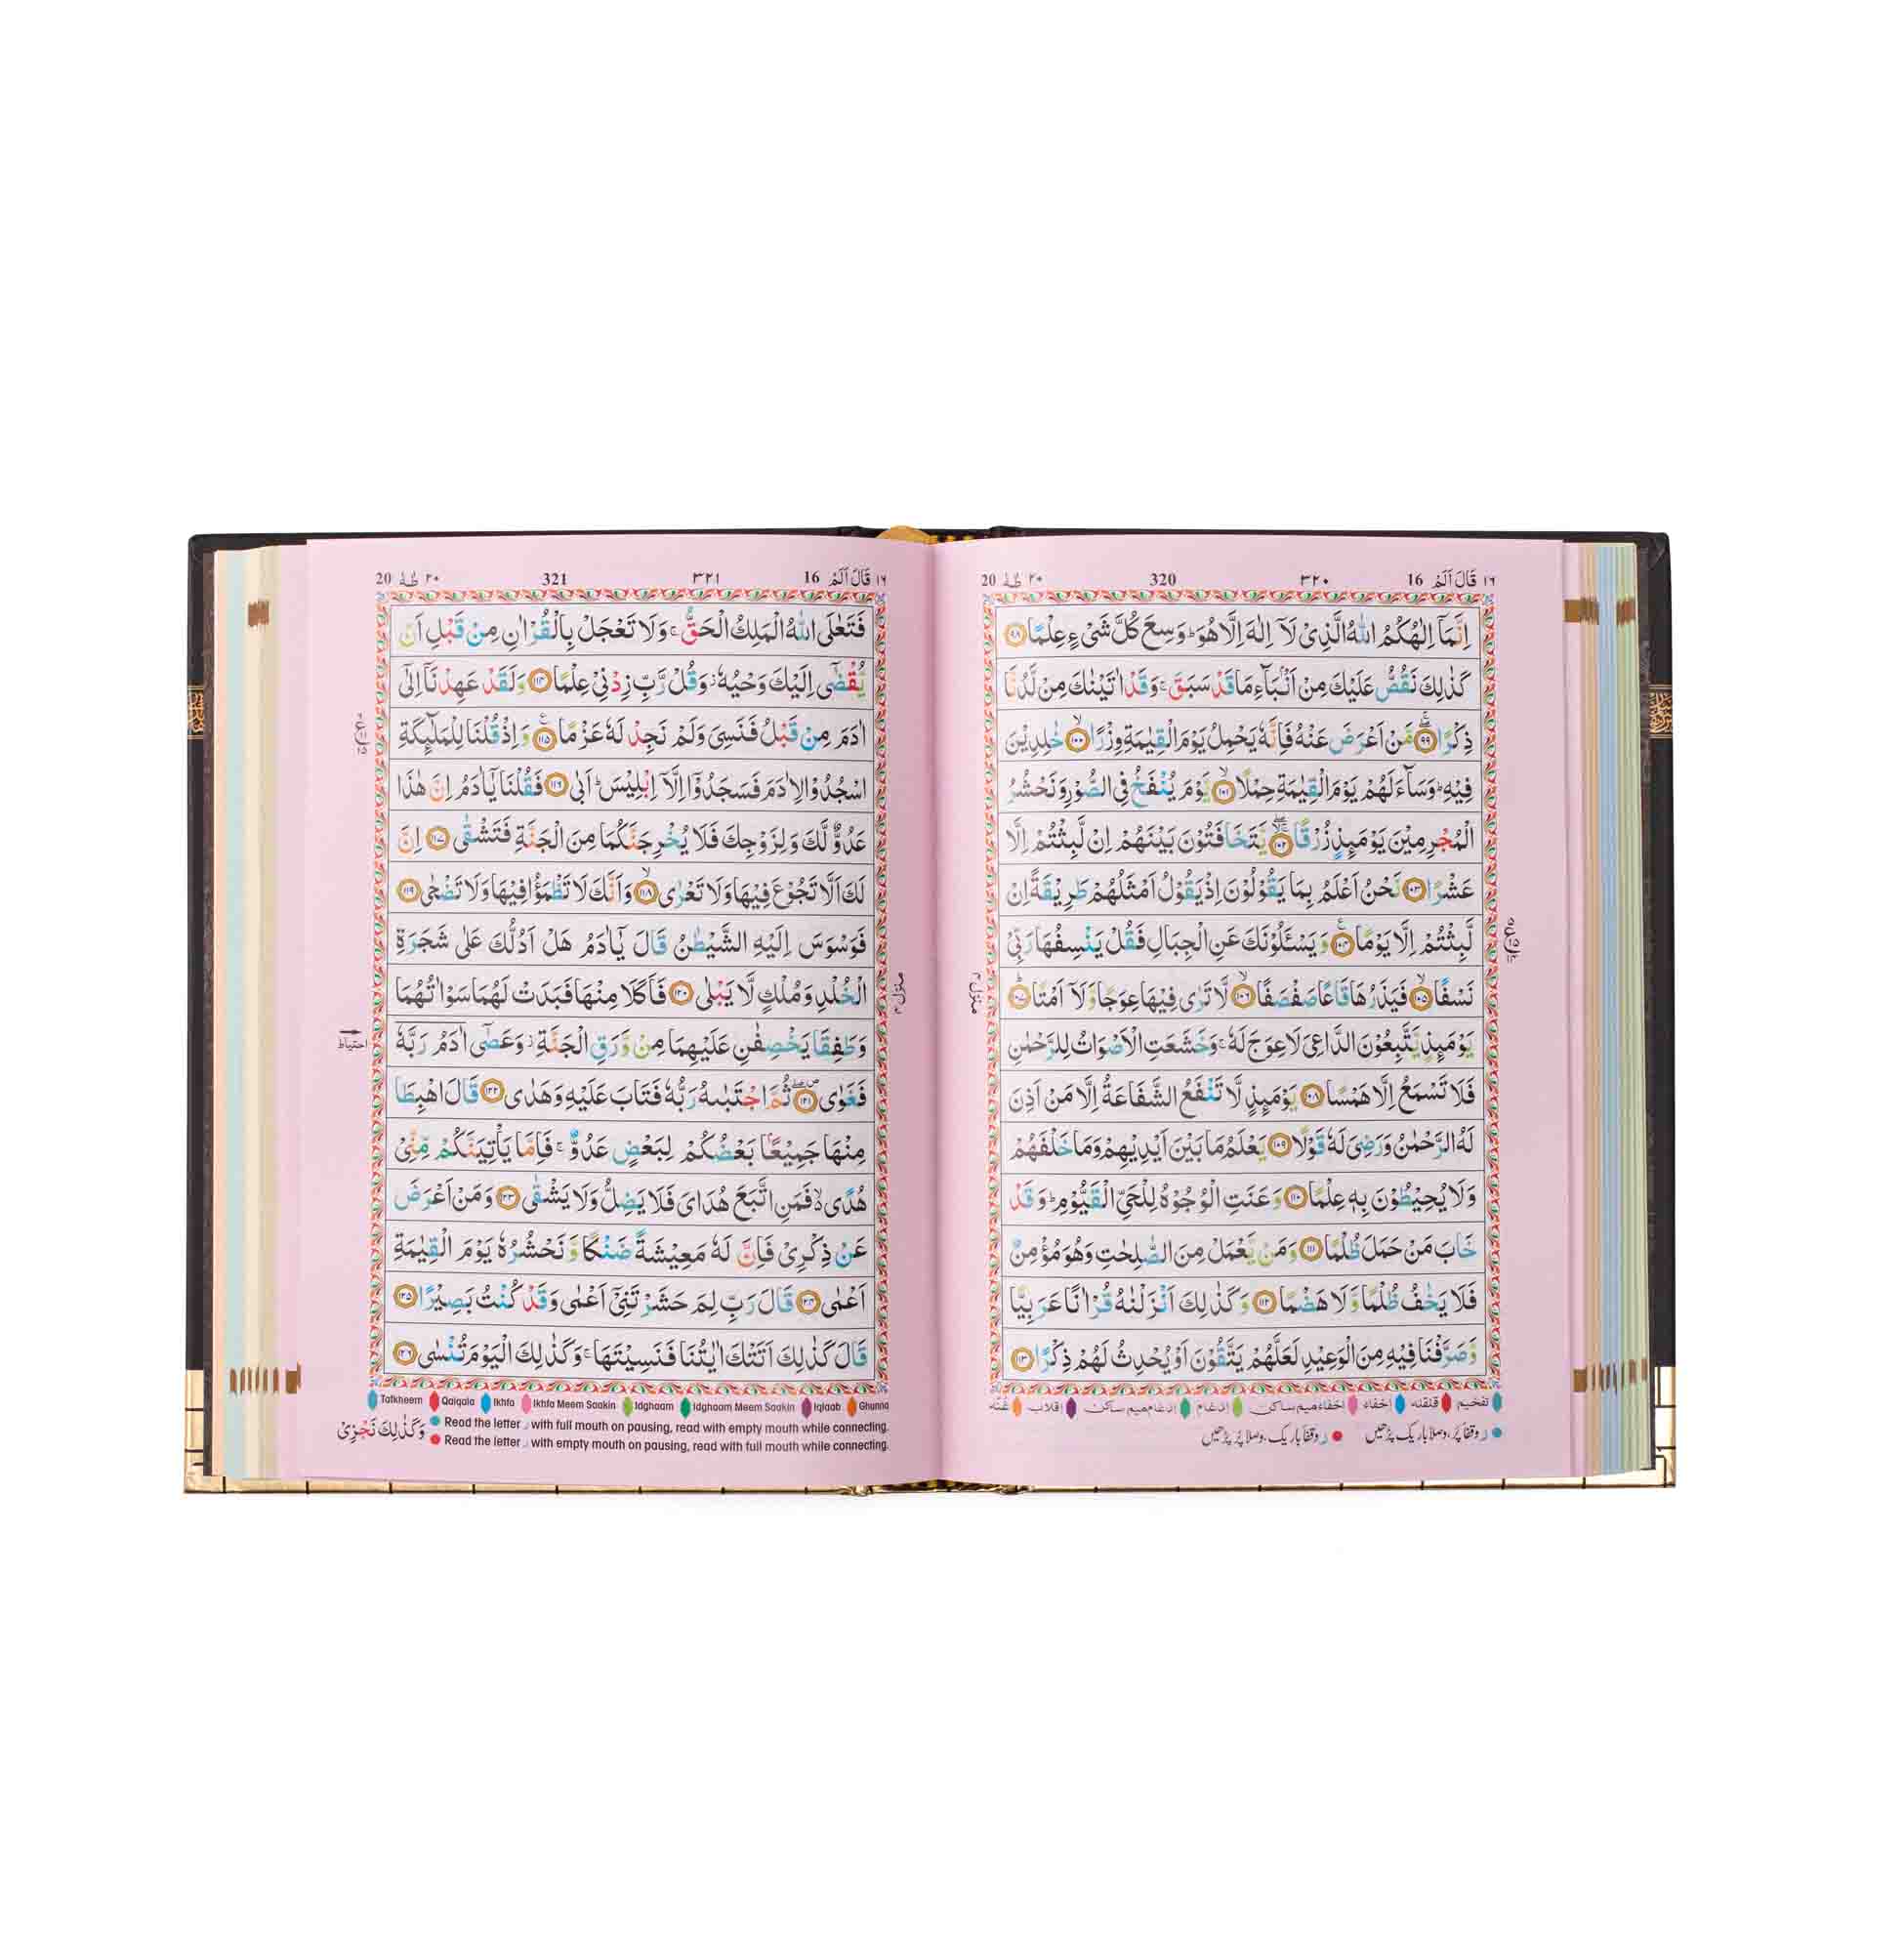 ١٦ قَالَ اَلَمْ 16 ٣٢٠ 320 ٢٠ طٰهٰ 20
اِنَّمَاۤ اِلٰهُكُمُ اللّٰهُ الَّذِیْ لَاۤ اِلٰهَ اِلَّا هُوَ ؕ وَسِعَ كُلَّ شَیْءٍ عِلْمًا ﴿۹۸﴾
كَذٰلِكَ نَقُصُّ عَلَیْكَ مِنْ اَنْۢبَآءِ مَا قَدْ سَبَقَ ۚ وَقَدْ اٰتَیْنٰكَ مِنْ لَّدُنَّا
ذِكْرًا ﴿۹۹﴾ۖۚ مَنْ اَعْرَضَ عَنْهُ فَاِنَّهٗ یَحْمِلُ یَوْمَ الْقِیٰمَةِ وِزْرًا ﴿۱۰۰﴾ۙ خٰلِدِیْنَ
فِیْهِ ؕ وَسَآءَ لَهُمْ یَوْمَ الْقِیٰمَةِ حِمْلًا ﴿۱۰۱﴾ۙ یَّوْمَ یُنْفَخُ فِی الصُّوْرِ وَنَحْشُرُ
الْمُجْرِمِیْنَ یَوْمَىِٕذٍ زُرْقًا ﴿۱۰۲﴾ۚۖ یَّتَخَافَتُوْنَ بَیْنَهُمْ اِنْ لَّبِثْتُمْ اِلَّا
عَشْرًا ﴿۱۰۳﴾ نَحْنُ اَعْلَمُ بِمَا یَقُوْلُوْنَ اِذْ یَقُوْلُ اَمْثَلُهُمْ طَرِیْقَةً اِنْ
لَّبِثْتُمْ اِلَّا یَوْمًا ﴿۱۰۴﴾۠ وَیَسْـَٔلُوْنَكَ عَنِ الْجِبَالِ فَقُلْ یَنْسِفُهَا رَبِّیْ
نَسْفًا ﴿۱۰۵﴾ۙ فَیَذَرُهَا قَاعًا صَفْصَفًا ﴿۱۰۶﴾ۙ لَّا تَرٰی فِیْهَا عِوَجًا وَّلَاۤ اَمْتًا ﴿۱۰۷﴾ؕ
یَوْمَىِٕذٍ یَّتَّبِعُوْنَ الدَّاعِیَ لَا عِوَجَ لَهٗ ۚ وَخَشَعَتِ الْاَصْوَاتُ لِلرَّحْمٰنِ
فَلَا تَسْمَعُ اِلَّا هَمْسًا ﴿۱۰۸﴾ یَوْمَىِٕذٍ لَّا تَنْفَعُ الشَّفَاعَةُ اِلَّا مَنْ اَذِنَ
لَهُ الرَّحْمٰنُ وَرَضِیَ لَهٗ قَوْلًا ﴿۱۰۹﴾ یَعْلَمُ مَا بَیْنَ اَیْدِیْهِمْ وَمَا خَلْفَهُمْ
وَلَا یُحِیْطُوْنَ بِهٖ عِلْمًا ﴿۱۱۰﴾ وَعَنَتِ الْوُجُوْهُ لِلْحَیِّ الْقَیُّوْمِ ؕ وَقَدْ
خَابَ مَنْ حَمَلَ ظُلْمًا ﴿۱۱۱﴾ وَمَنْ یَّعْمَلْ مِنَ الصّٰلِحٰتِ وَهُوَ مُؤْمِنٌ
فَلَا یَخٰفُ ظُلْمًا وَّلَا هَضْمًا ﴿۱۱۲﴾ وَكَذٰلِكَ اَنْزَلْنٰهُ قُرْاٰنًا عَرَبِیًّا
وَّصَرَّفْنَا فِیْهِ مِنَ الْوَعِیْدِ لَعَلَّهُمْ یَتَّقُوْنَ اَوْ یُحْدِثُ لَهُمْ ذِكْرًا ﴿۱۱۳﴾
منزل ۴
تفخیم قلقلہ اخفاء اخفاءمیم ساکن ادغام ادغام میم ساکن اقلاب غنّہ
ر وقفاً پُر، وصلاً باریک پڑھیں ر وقفاً باریک، وصلاً پُر پڑھیں
١٦ قَالَ اَلَمْ 16 ٣٢١ 321 ٢٠ طٰهٰ 20
فَتَعٰلَی اللّٰهُ الْمَلِكُ الْحَقُّ ۚ وَلَا تَعْجَلْ بِالْقُرْاٰنِ مِنْ قَبْلِ اَنْ
یُّقْضٰۤی اِلَیْكَ وَحْیُهٗ ؗ وَقُلْ رَّبِّ زِدْنِیْ عِلْمًا ﴿۱۱۴﴾ وَلَقَدْ عَهِدْنَاۤ اِلٰۤی
اٰدَمَ مِنْ قَبْلُ فَنَسِیَ وَلَمْ نَجِدْ لَهٗ عَزْمًا ﴿۱۱۵﴾۠ وَاِذْ قُلْنَا لِلْمَلٰٓىِٕكَةِ
اسْجُدُوْا لِاٰدَمَ فَسَجَدُوْۤا اِلَّاۤ اِبْلِیْسَ ؕ اَبٰی ﴿۱۱۶﴾ فَقُلْنَا یٰۤاٰدَمُ اِنَّ هٰذَا
عَدُوٌّ لَّكَ وَلِزَوْجِكَ فَلَا یُخْرِجَنَّكُمَا مِنَ الْجَنَّةِ فَتَشْقٰی ﴿۱۱۷﴾ اِنَّ
لَكَ اَلَّا تَجُوْعَ فِیْهَا وَلَا تَعْرٰی ﴿۱۱۸﴾ۙ وَاَنَّكَ لَا تَظْمَؤُا فِیْهَا وَلَا تَضْحٰی ﴿۱۱۹﴾
فَوَسْوَسَ اِلَیْهِ الشَّیْطٰنُ قَالَ یٰۤاٰدَمُ هَلْ اَدُلُّكَ عَلٰی شَجَرَةِ
الْخُلْدِ وَمُلْكٍ لَّا یَبْلٰی ﴿۱۲۰﴾ فَاَكَلَا مِنْهَا فَبَدَتْ لَهُمَا سَوْاٰتُهُمَا
وَطَفِقَا یَخْصِفٰنِ عَلَیْهِمَا مِنْ وَّرَقِ الْجَنَّةِ ؗ وَعَصٰۤی اٰدَمُ رَبَّهٗ
فَغَوٰی ﴿۱۲۱﴾۪ۖ ثُمَّ اجْتَبٰىهُ رَبُّهٗ فَتَابَ عَلَیْهِ وَهَدٰی ﴿۱۲۲﴾ قَالَ اهْبِطَا
مِنْهَا جَمِیْعًۢا بَعْضُكُمْ لِبَعْضٍ عَدُوٌّ ۚ فَاِمَّا یَاْتِیَنَّكُمْ مِّنِّیْ
هُدًی ۙ۬ فَمَنِ اتَّبَعَ هُدَایَ فَلَا یَضِلُّ وَلَا یَشْقٰی ﴿۱۲۳﴾ وَمَنْ اَعْرَضَ
عَنْ ذِكْرِیْ فَاِنَّ لَهٗ مَعِیْشَةً ضَنْكًا وَّنَحْشُرُهٗ یَوْمَ الْقِیٰمَةِ
اَعْمٰی ﴿۱۲۴﴾ قَالَ رَبِّ لِمَ حَشَرْتَنِیْۤ اَعْمٰی وَقَدْ كُنْتُ بَصِیْرًا ﴿۱۲۵﴾
قَالَ كَذٰلِكَ اَتَتْكَ اٰیٰتُنَا فَنَسِیْتَهَا ۚ وَكَذٰلِكَ الْیَوْمَ تُنْسٰی ﴿۱۲۶﴾
منزل ۴
احتیاط
Tafkheem Qalqala Ikhfa Ikhfa Meem Saakin Idghaam Idghaam Meem Saakin Iqlaab Ghunna
Read the letter ر with full mouth on pausing, read with empty mouth while connecting.
Read the letter ر with empty mouth on pausing, read with full mouth while connecting.
وَكَذٰلِكَ نَجْزِیْ